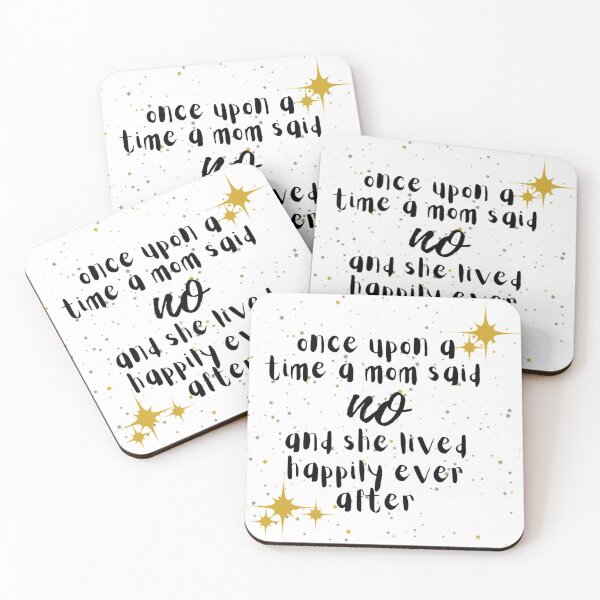 once upon a
time a mom said
no
lived
ever
once upon a
time a mom said
no
and she lived
happily ever
once upon a
time a mom said
no
and she lived
happily ever
after
once upon a
time a mom said
no
and she lived
happily ever
after